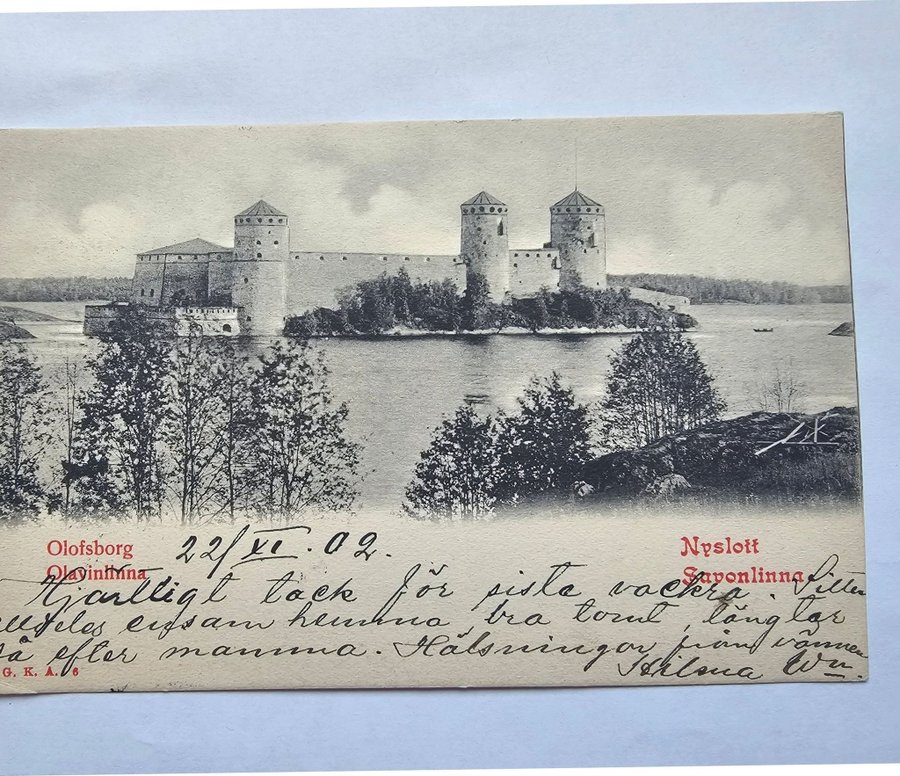 Olofsborg
Olavinlinna
Nyslott
Savonlinna
22/XI. 02.
Hjärtligt tack för sista vackra. Sitter
alldeles ensam hemma, bra tomt, längtar
så efter mamma. Hälsningar från vännen
Hilma Wn.
G. K. A. 6